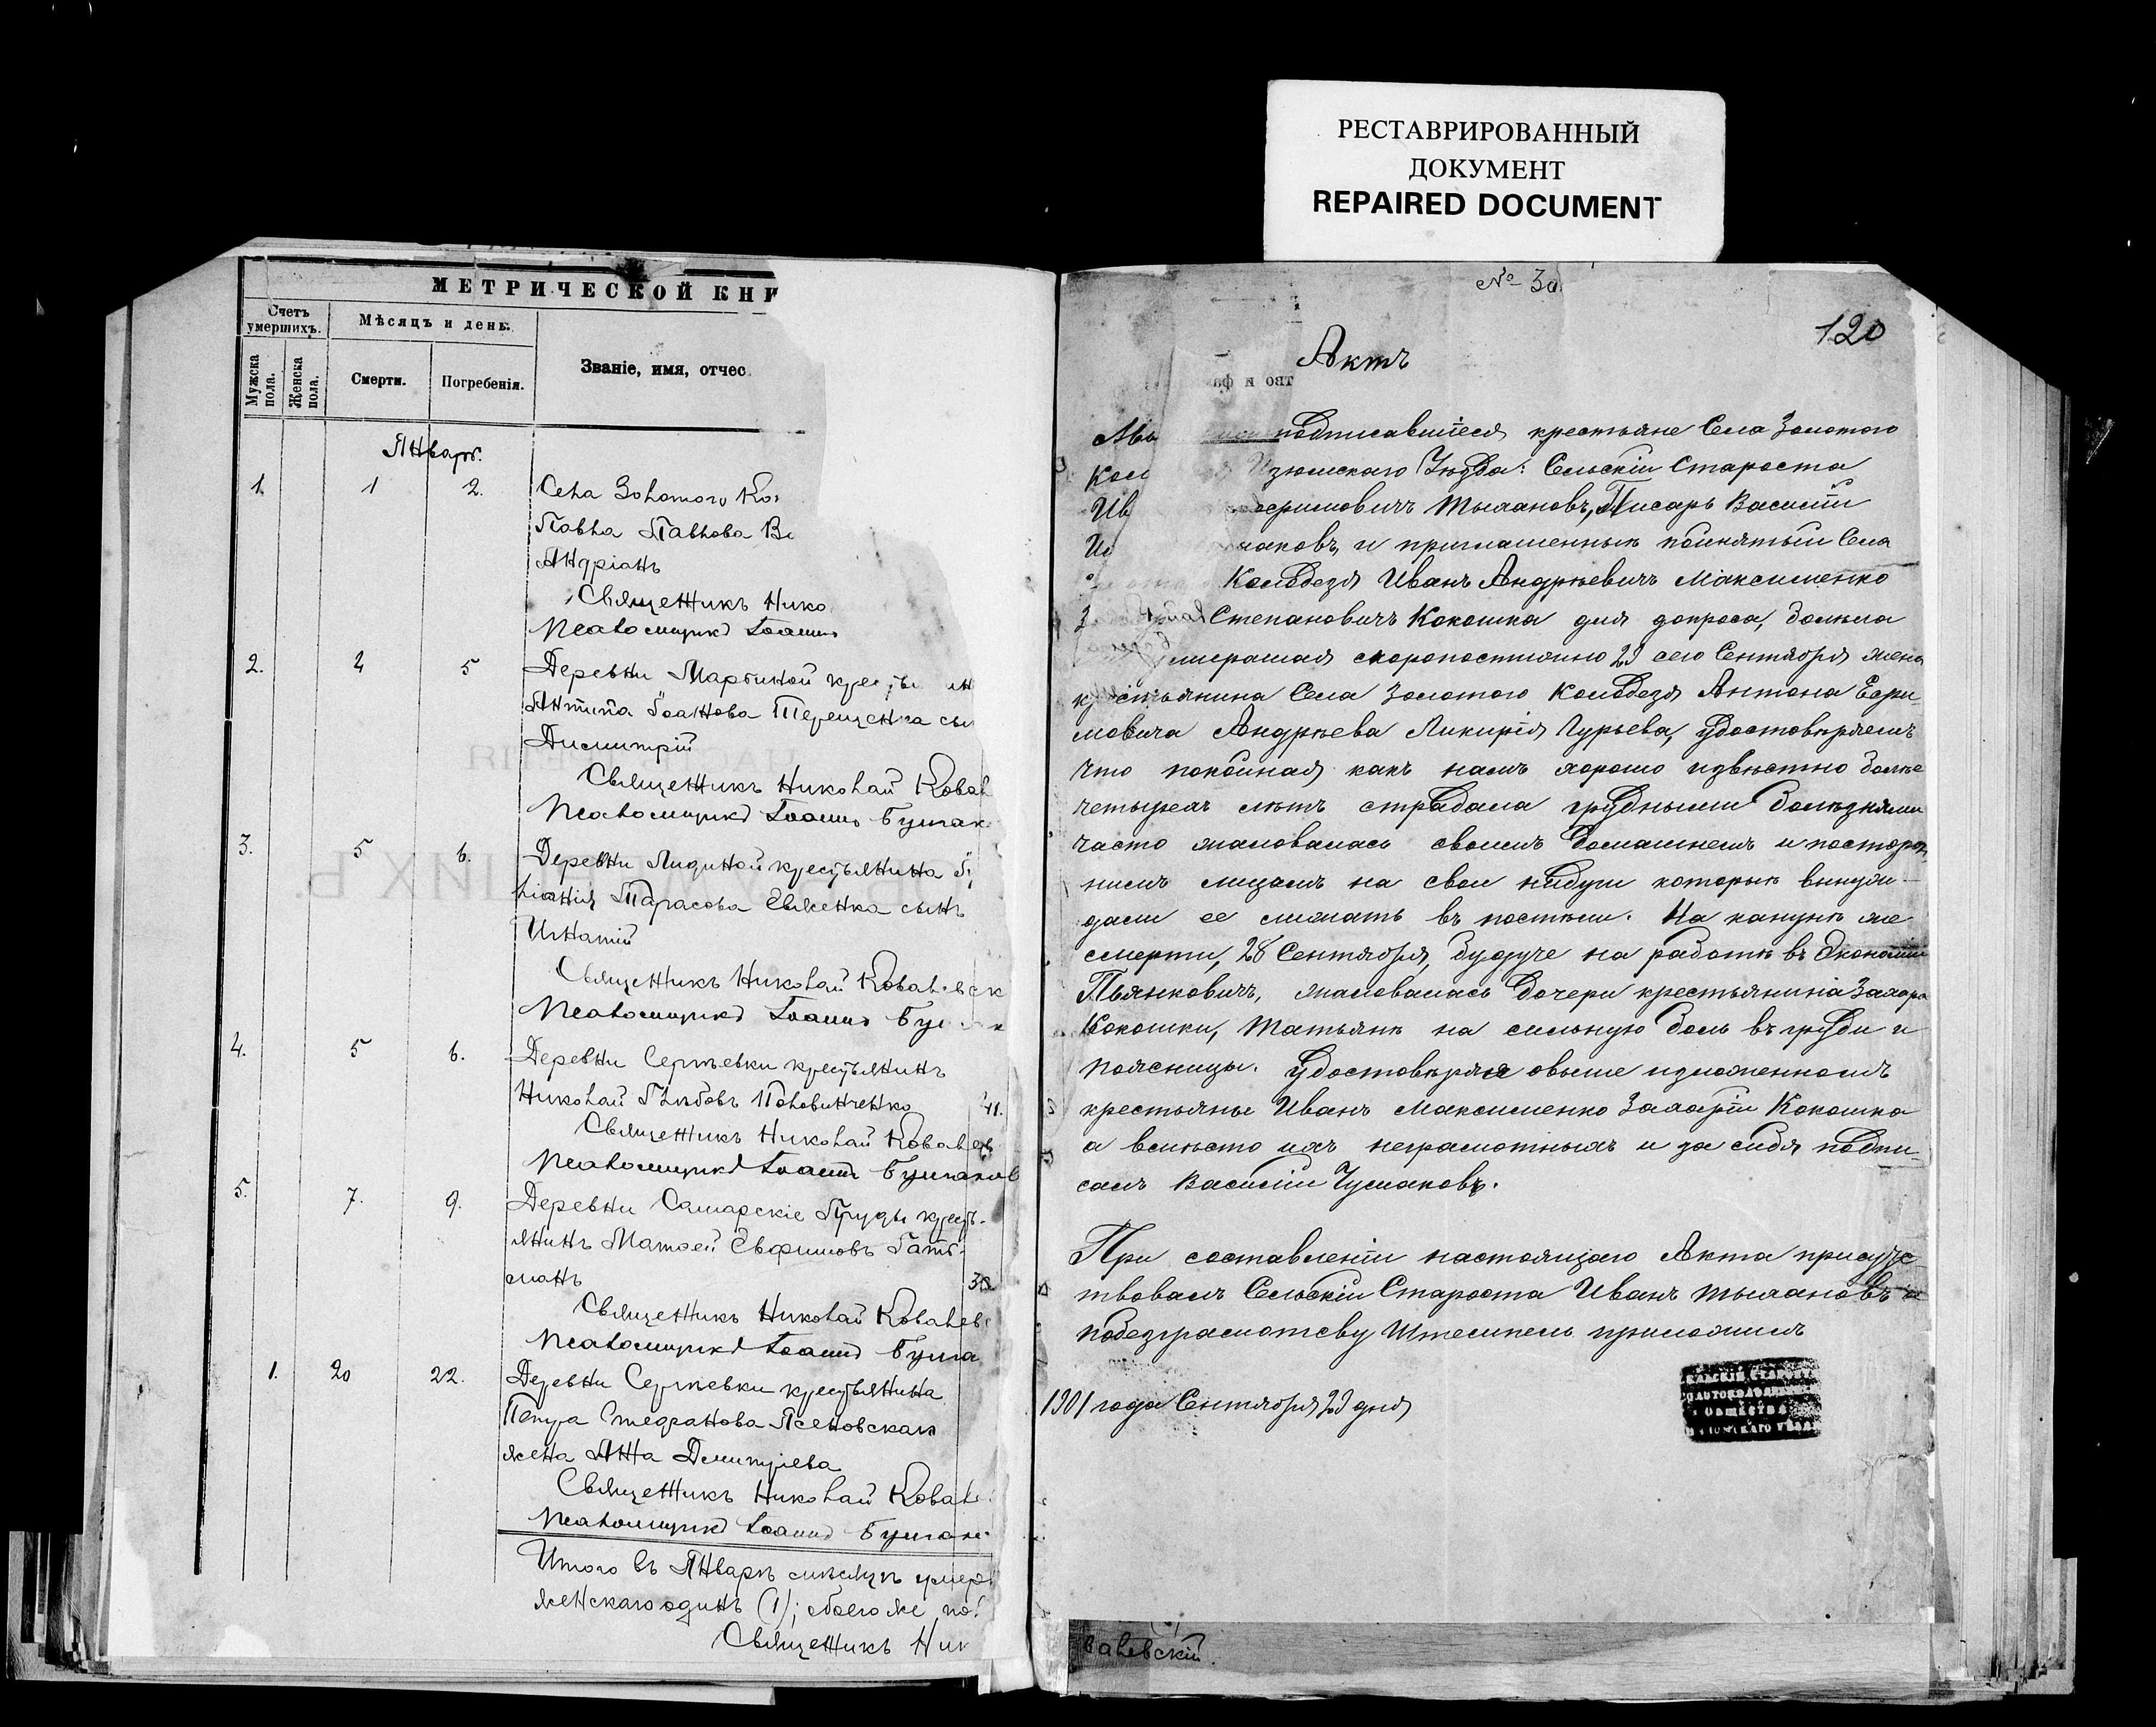 РЕСТАВРИРОВАННЫЙ
ДОКУМЕНТ
REPAIRED DOCUMENT
МЕТРИЧЕСКОЙ КНИ
Счетъ умершихъ.
Мѣсяцъ и день.
Мужска пола.
Женска пола.
Смерти.
Погребенія.
Званіе, имя, отчес
Январь.
1. 1 2. Села Золотого Ко
Павла Павлова
Андріанъ
Священникъ Нико
Псаломщикъ Іоаннъ
2. 2 5 Деревни Марьиной
Антипа Іоаннова Терещенка сы
Димитрій
Священникъ Николай Ковал
Псаломщикъ Іоаннъ
3. 5 6. Деревни Лидиной крестьянина
Тарасова Евженка сынъ
Игнатій
Священникъ Николай Ковалевск
Псаломщикъ Іоаннъ
4. 5 6. Деревни Сергѣевки крестьянинъ
Николай Глѣбовъ Половинченко 41.
Священникъ Николай Ковалев
Псаломщикъ Іоаннъ
5. 7. 9. Деревни Самарскіе Пруды кресть-
янинъ Матѳей Евфимовъ Гать-
манъ 38
Священникъ Николай Ковалев
Псаломщикъ Іоаннъ
1. 20 22. Деревни Сергѣевки крестьянина
Петра Стефанова Ясеновскаго
жена Анна Димитріева
Священникъ Николай Ковале
Псаломщикъ Іоаннъ
Итого въ Январѣ мѣсяцѣ умер
женскаго одинъ (1); обоего же по
Священникъ Ник
№ 30
120
Актъ
подписавшіеся крестьяне Села Золотого
Кол Изюмскаго Уѣзда: Сельскій Староста
Ив Тымановъ, Писарь Василій
и приглашенные понятыи Села
Колодезя Иванъ Андрѣевичъ Максименко
З Степановичъ Кокошка для допроса, болѣла
умершая скоропостижно 29 сего Сентября жена
крестьянина Села Золотого Колодезя Антона Ефи-
мовича Андрѣева Ликирія Гурьева, Удостовѣряемъ
что покойная какъ намъ хорошо извѣстно болѣе
четырехъ лѣтъ страдала грудными болѣзнями
часто жаловалась своимъ домашнемъ и посторон
нимъ лицамъ на свои нидуги которые вынуж-
дали ее лижать въ постели. На канунѣ же
смерти, 28 Сентября, будуче на работѣ въ Экономіи
Пьянковичъ, жаловалась дочери крестьянина Захара
Кокошки, Татьянѣ на сильную боль въ груди и
поясницы. Удостовѣряя овыше изложенномъ
крестьяны Иванъ Максименко Захарій Кокошка
а вмѣсто ихъ неграмотныхъ и за сибя подпи-
салъ Василій Чумаковъ.
При составленіи настоящаго Акта присудс-
твовалъ Сельскій Староста Иванъ Тымановъ а
побезграмотсву Штемпель приложилъ
1901 года Сентября 29 дня
ОБЩЕСТВА
валевскій.